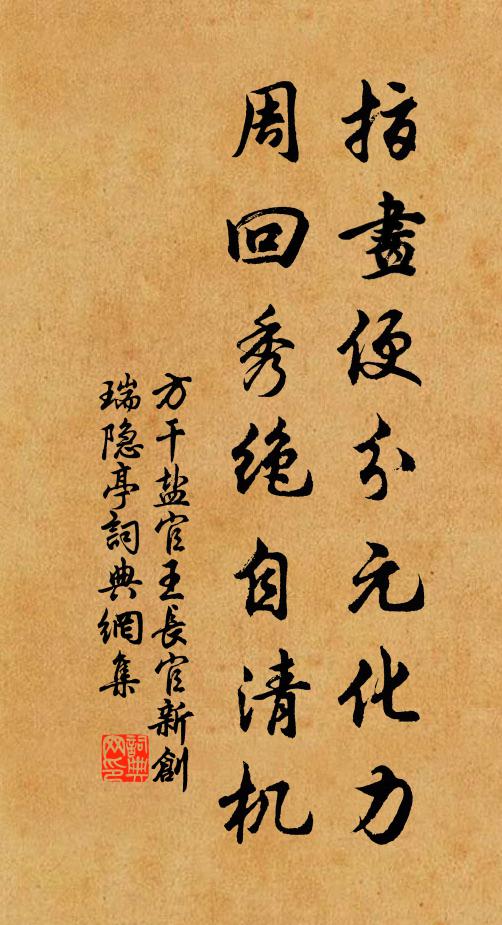 指畫便分元化力
周回秀絶自清机
方干盐官王長官新創
瑞隐亭詞典網集
詞典
网印